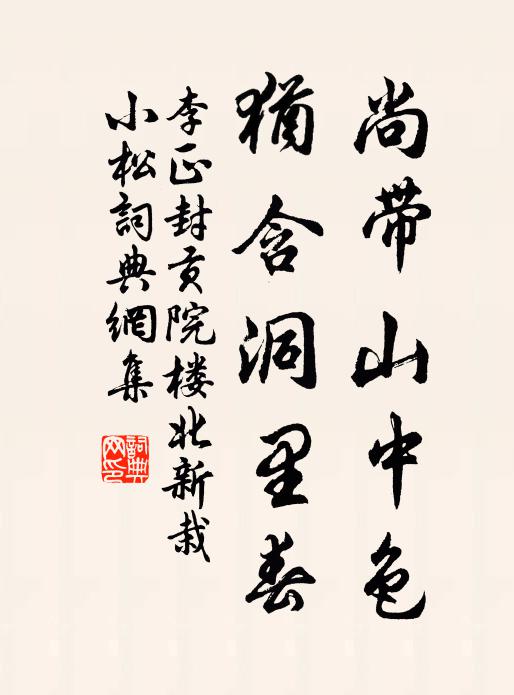 尚带山中色
犹含洞里春
李正封贡院楼北新栽
小松詞典網集
詞典网印